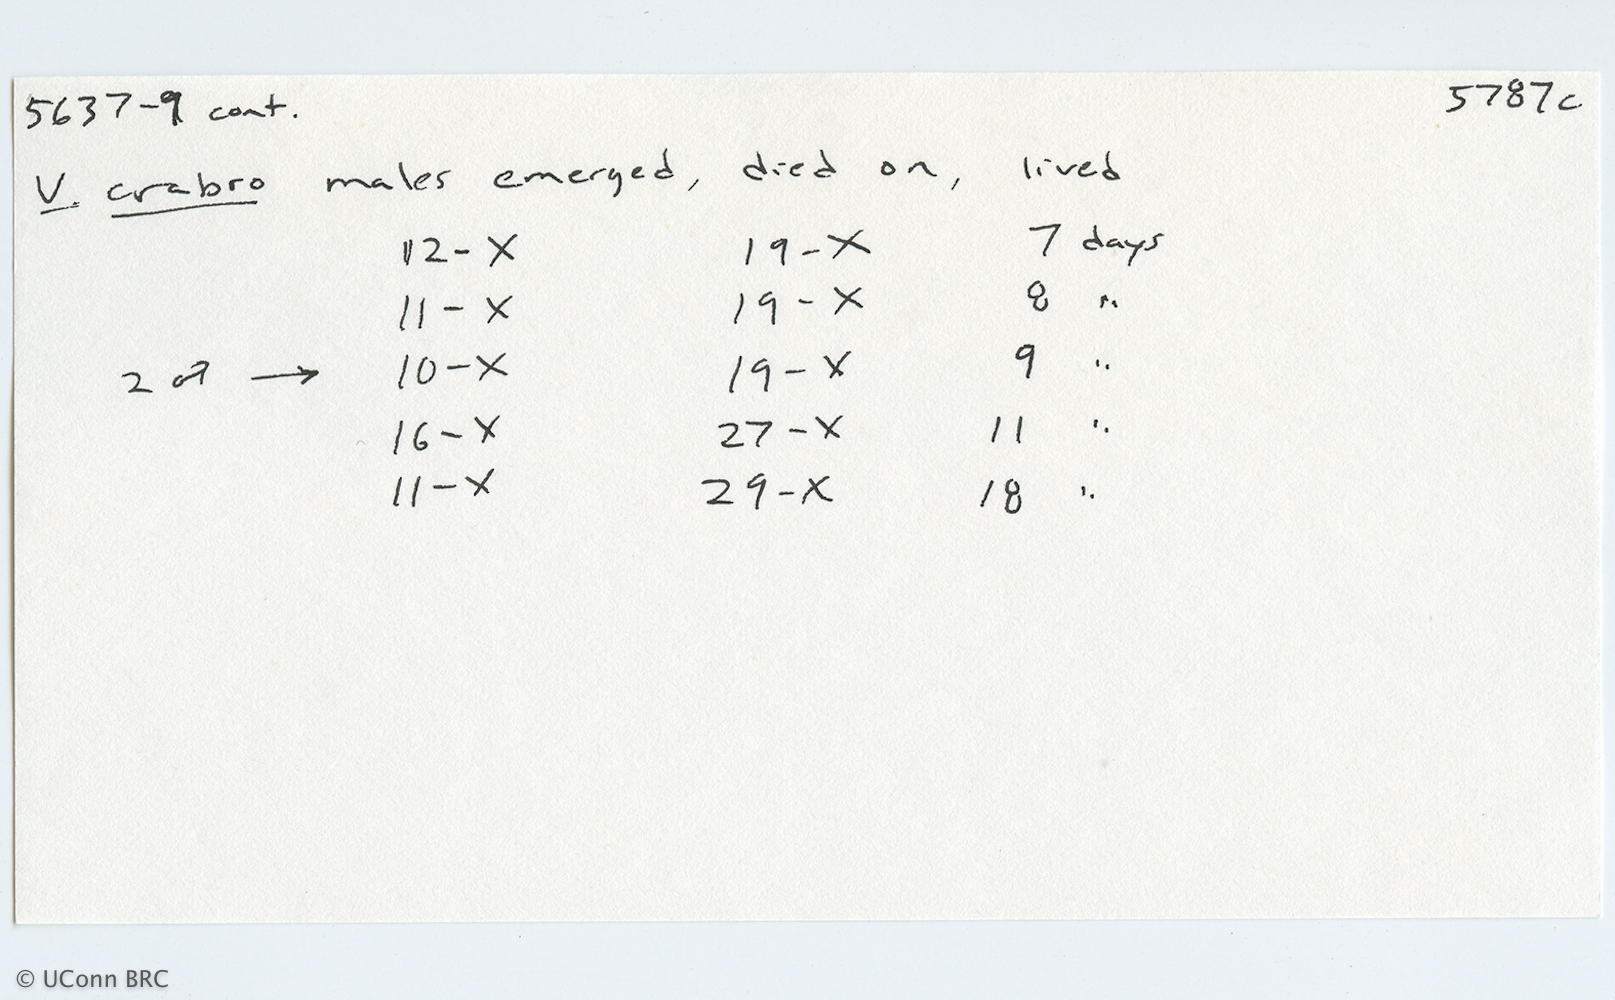 5637-9 cont. 5787c
V. crabro males emerged, died on, lived
12-X 19-X 7 days
11-X 19-X 8 "
2 ♂ → 10-X 19-X 9 "
16-X 27-X 11 "
11-X 29-X 18 "
© UConn BRC